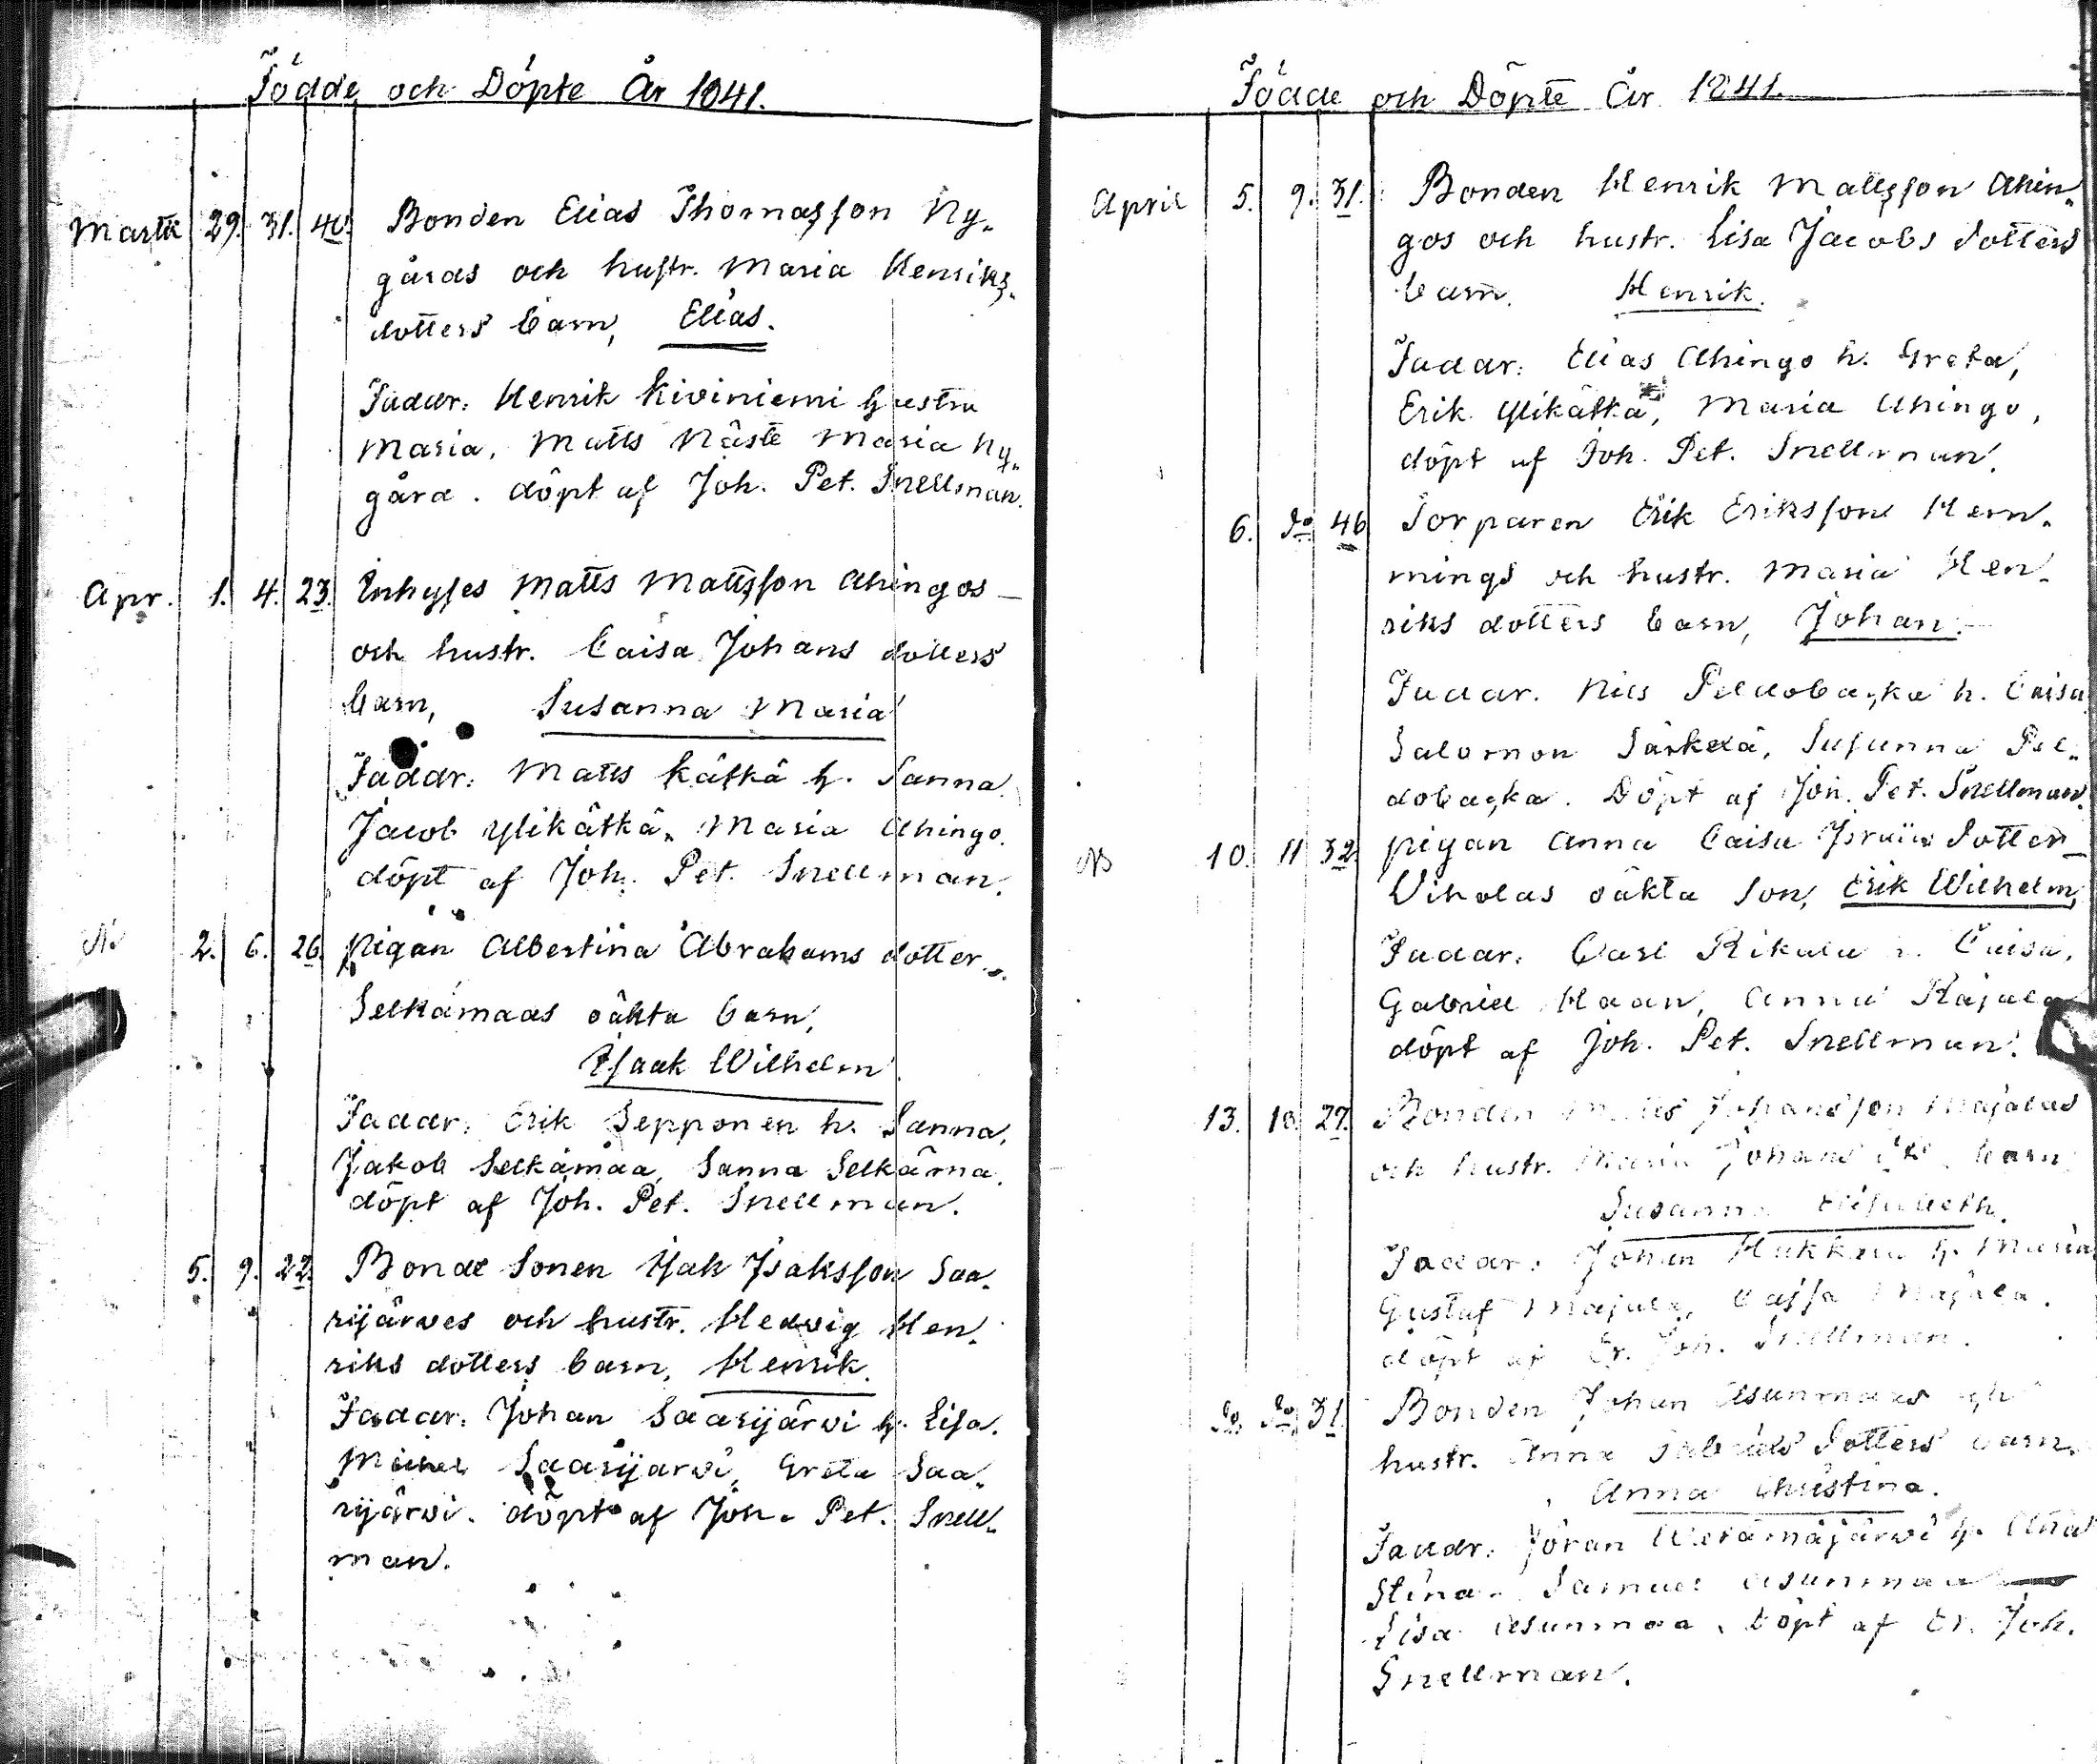 Födde och Döpte År 1841.
Martii 29. 31. 40. Bonden Elias Thomasson Ny-
gårds och hustr. Maria Henriks-
dotters barn, Elias.
Faddr: Henrik Kiviniemi hustru
Maria, Matts Näste Maria Ny-
gård. döpt af Joh. Pet. Snellman.
Apr. 1. 4. 23. Inhyses Matts Mattsson Ahingos
och hustr. Caisa Johans dotters
barn, Susanna Maria
Faddr: Matts Kätkä h. Sanna
Jacob Ylikätkä, Maria Ahingo.
döpt af Joh. Pet. Snellman.
2. 6. 26. pigan Albertina Abrahams dotter
Selkämaas oäkta barn,
Isaak Wilhelm
Faddr: Erik Sepponen h. Sanna,
Jakob Selkämaa, Sanna Selkäma.
döpt af Joh. Pet. Snellman.
5. 9. 22. Bonde Sonen Isak Isaksson Saa-
rijärves och hustr. Hedvig Hen-
riks dotters barn, Henrik.
Faddr: Johan Saarijärvi h. Lisa.
Saarijärvi, Greta Saa-
rijärvi. döpt af Joh. Pet. Snell-
man.
Födde och Döpte År 1841.
April 5. 9. 31. Bonden Henrik Mattsson Ahin-
gos och hustr. Lisa Jacobs dotters
barn. Henrik.
Faddr: Elias Ahingo h. Greta,
Erik Ylikätkä, Maria Ahingo,
döpt af Joh. Pet. Snellman.
6. do 46 Torparen Erik Eriksson Hem-
mings och hustr. Maria Hen-
riks dotters barn, Johan.
Faddr. Nils Peldobacka h. Caisa
Salomon Särkelä, Susanna Pel-
dobacka. Döpt af Joh. Pet. Snellman.
NB 10. 11 32. pigan Anna Caisa Israels Dotter
Viholas oäkta Son, Erik Wilhelm,
Faddr: Carl Rikala h. Caisa,
Gabriel Haan, Anna Rajala
döpt af Joh. Pet. Snellman.
13. 18. 27. Bonden Johansson Majalas
och hustr. Maria Johans barn
Susanna Elisabeth.
Faddr: Johan h. Maria
Gustaf Majala, Cajsa Majala.
döpt af Er. Joh. Snellman.
do. do. 31. Bonden Johan Asunmaas och
hustr. Anna Gabriels Dotters barn.
Anna Christina.
Faddr: Jöran h. Anna
Stina. Samuel Asunmaa
Lisa Asunmaa. Döpt af Er. Joh.
Snellman.